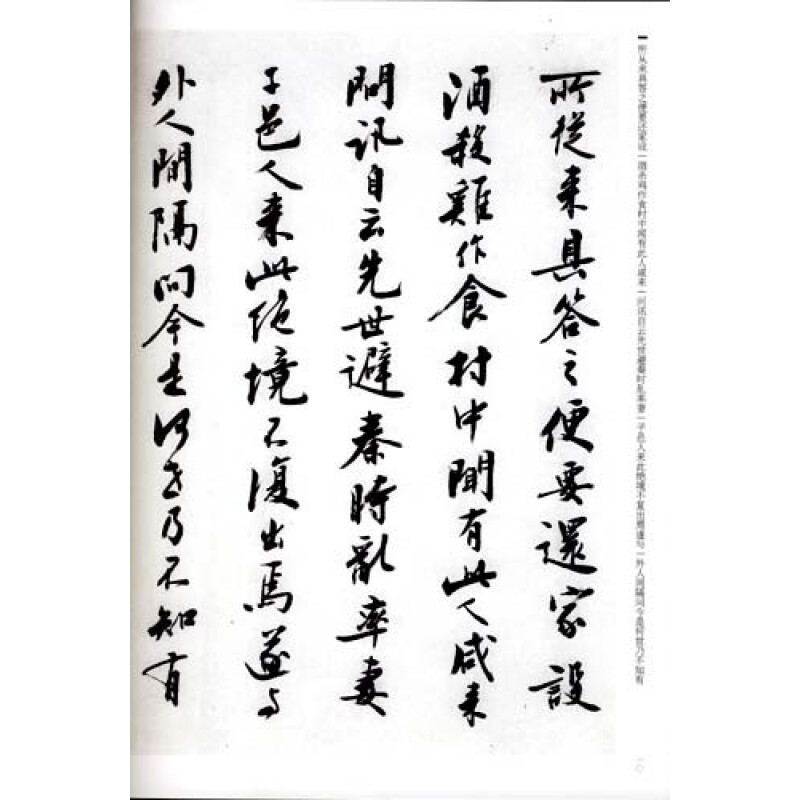 所從来具答之便要還家設
酒殺雞作食村中聞有此人咸来
問訊自云先世避秦時亂率妻
子邑人来此絶境不復出焉遂与
外人間隔问今是何世乃不知有
所从来具答之便要还家设一酒杀鸡作食村中闻有此人咸来一问讯自云先世避秦时乱率妻一子邑人来此绝境不复出焉遂与一外人间隔问今是何世乃不知有
一〇